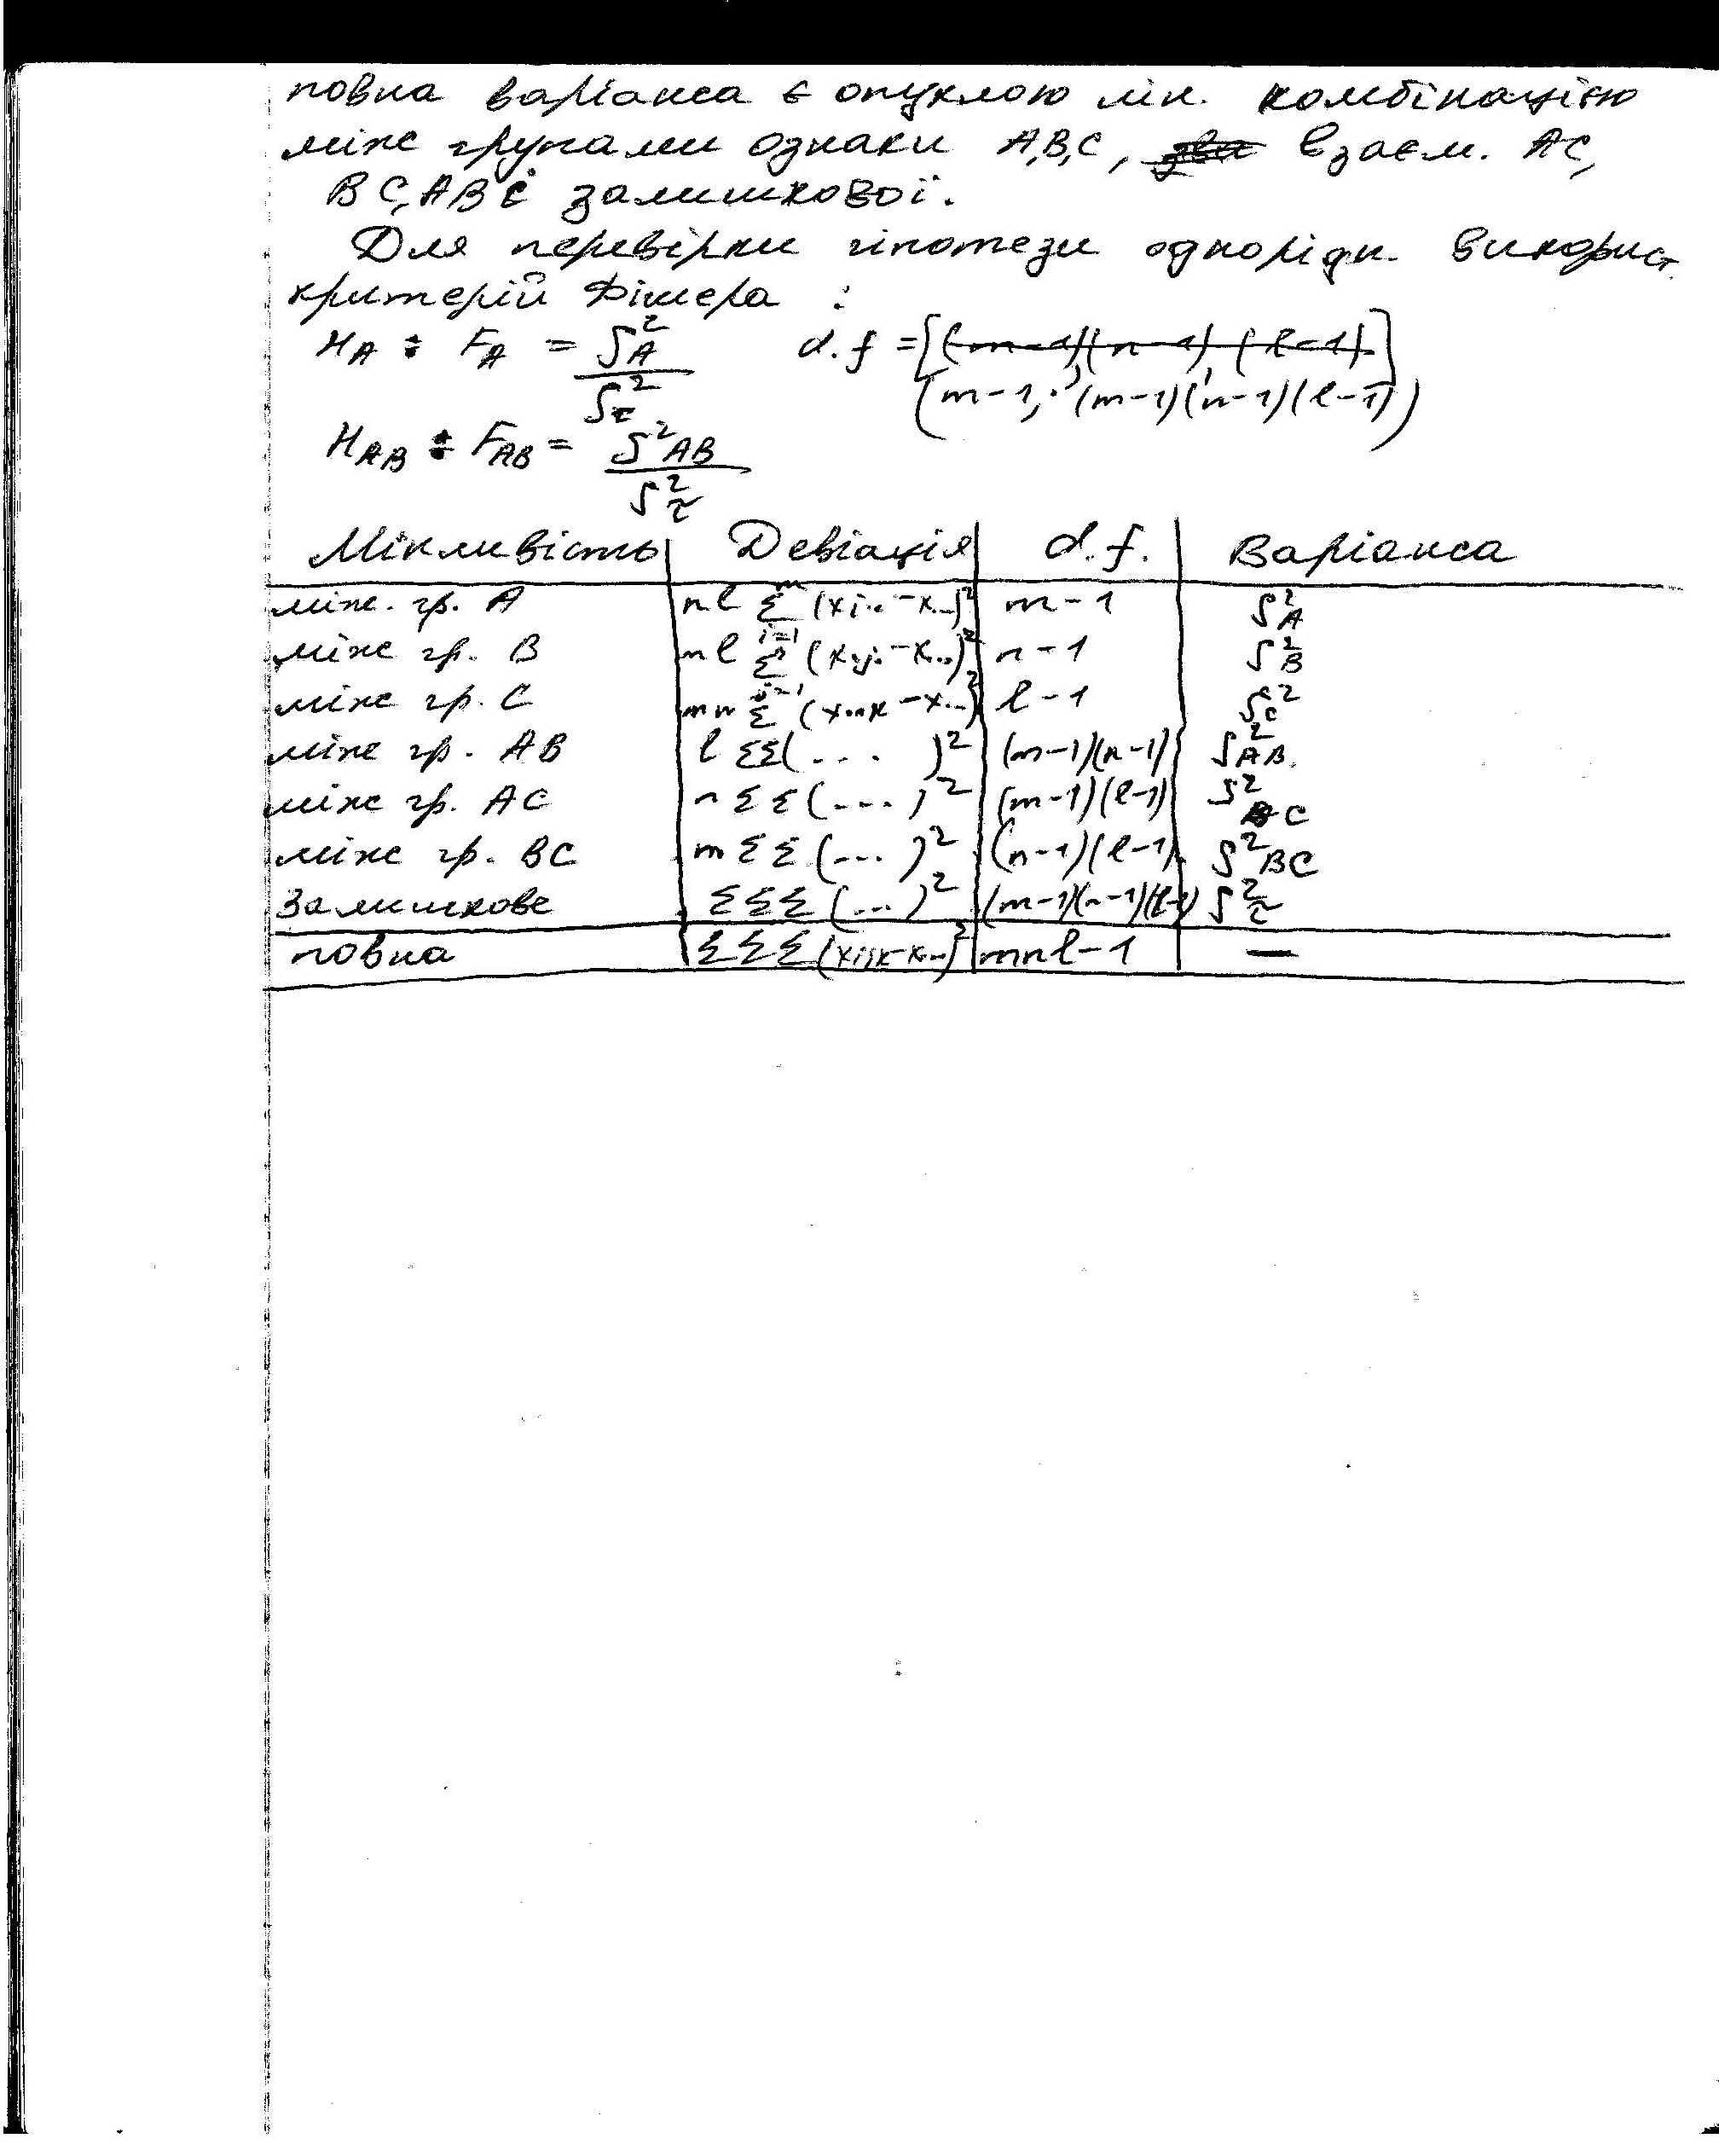 повна варіанса є опуклою лін. комбінацією
між групами ознаки A,B,C, взаєм. AC,
BC, AB і залишкової.
Для перевірки гіпотези однорідн. використ.
критерій Фішера :
H_A : F_A = S²_A / S²_z d.f = [(m-1)(n-1)(l-1)]
(m-1, (m-1)(n-1)(l-1))
H_AB : F_AB = S²_AB / S²_z
Мінливість | Девіація | d.f. | Варіанса
між. гр. A | nl Σ_{i=1}^{m} (x_i.. - x...)² | m-1 | S²_A
між гр. B | ml Σ (x.j. - x...)² | n-1 | S²_B
між гр. C | mn Σ (x..k - x...)² | l-1 | S²_C
між гр. AB | l ΣΣ(... )² | (m-1)(n-1) | S²_AB
між гр. AC | n ΣΣ(...)² | (m-1)(l-1) | S²_AC
між гр. BC | m ΣΣ(...)² | (n-1)(l-1) | S²_BC
Залишкове | ΣΣΣ(...)² | (m-1)(n-1)(l-1) | S²_z
повна | ΣΣΣ(x_ijk - x...)² | mnl-1 | —